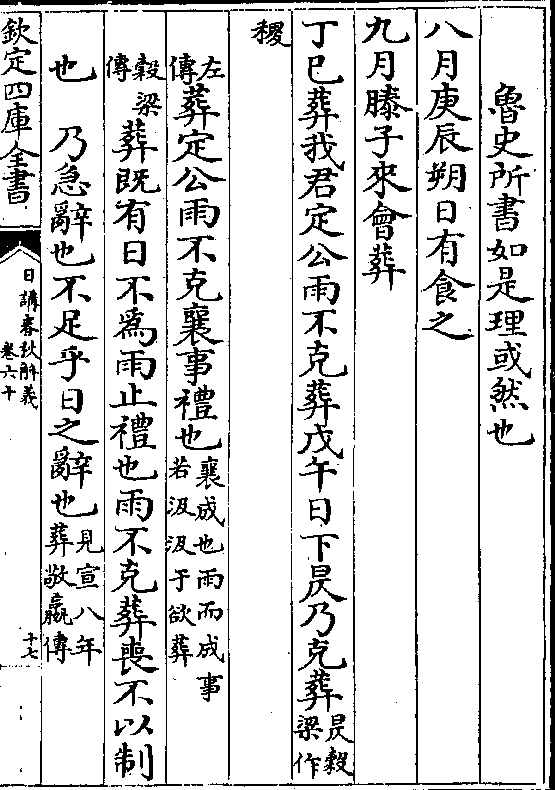 魯史所書如是理或然也
八月庚辰朔日有食之
九月滕子來會葬
丁巳葬我君定公雨不克葬戊午日下昃乃克葬昃穀梁作
稷
左傳葬定公雨不克襄事禮也襄成也雨而成事若汲汲于欲葬
穀梁傳葬既有日不為雨止禮也雨不克葬喪不以制
也 乃急辭也不足乎日之辭也見宣八年葬敬嬴傳
欽定四庫全書
日講春秋解義
卷六十
十七